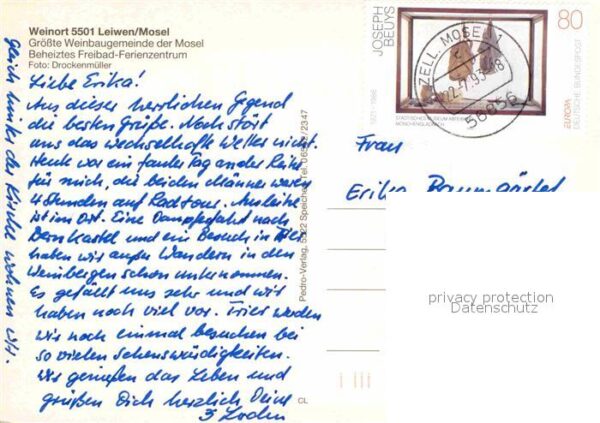 Weinort 5501 Leiwen/Mosel
Größte Weinbaugemeinde der Mosel
Beheiztes Freibad-Ferienzentrum
Foto: Drockenmüller
Liebe Erika!
Aus dieser herrlichen Gegend
die besten Grüße. Noch stört
uns das wechselhafte Wetter nicht.
Heute war ein fauler Tag an der Reihe
für mich, die beiden Männer waren
4 Stunden auf Radtour. Ausleihe
ist im Ort. Eine Dampferfahrt nach
Bernkastel und ein Besuch in Trier
haben wir außer Wandern in den
Weinbergen schon unternommen.
Es gefällt uns sehr und wir
haben noch viel vor. Trier werden
wir noch einmal besuchen bei
so vielen Sehenswürdigkeiten.
Wir genießen das Leben und
grüßen Dich herzlich Deine
Gleich hinter der Kirche wohnen wir.
Pedro-Verlag, 5522 Speicher, Tel. 06562/2347
CL
JOSEPH
BEUYS
1921-1986
80
DEUTSCHE BUNDESPOST
EUROPA
STÄDTISCHES MUSEUM ABTEIBERG
MÖNCHENGLADBACH
ZELL, MOSEL 1
22.-7.93-18
56856
Frau
Erika Baumgärtel
privacy protection
Datenschutz